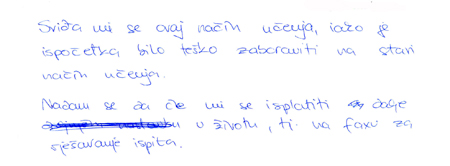 Sviđa mi se ovaj način učenja, iako je
ispočetka bilo teško zaboraviti na stari
način učenja.
Nadam se da će mi se isplatiti dalje
u životu, tj. na faxu za
rješavanje ispita.